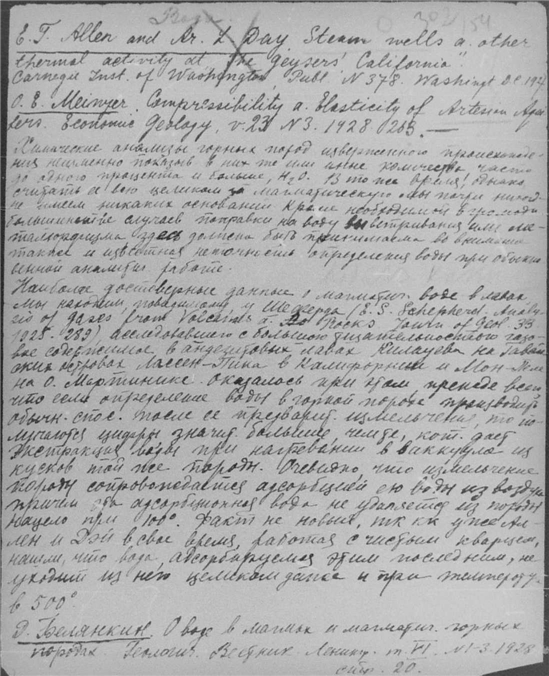 302/154
E. T. Allen and Ar. L Day. Steam wells a. other
thermal activity at "the geysers" California.
Carnegie Inst. of Washington Publ. N 378. Washingt. D.C. 1927
O. E. Meinzer. Compressibility a. Elasticity of Artesian Aqui
fers. Economic Geology, v. 23 N 3. 1928 263. —
Химические анализы горных пород изверженного происхожде-
ния неизменно показыв в них то или иное количество часто
до одного процента и больше, H2O. В то же время, однако,
считать ее всю целиком за магматическую мы почти никогда
не имеем никаких оснований кроме необходимой в громадн
большинстве случаев поправки на воду выветривания или ме-
таморфизма здесь должна быть принимаема во внимание
также и известная неточность определения воды при обыкно
венной анализа работе.
Наиболе достоверные данные о магматич. воде в лавах
мы находим, повидимому у Шеферда (E. S. Shepherd. Analy
sis of gases from Volcanos a. Rocks Journ of Geol. 33
1925 - 289), исследовавшего с большой тщательностью газо
вое содержимое в андезитовых лавах Килауеа на Гавай
ских островах Лассен-Пика в Калифорнии и Мон-Пеле
на О. Мартинике. Оказалось при этом прежде всего
что если определение воды в горной породе производить
обычн. спос. после ее предварит измельчения, то по
лучаются цифры значит большие, чем те, кот. даст
экстракция воды при нагревании в ваккууме из
кусков той же породы. Очевидно, что измельчение
породы сопровождается адсорбцией ею воды из воздуха
причем эта адсорбционная вода не удаляется из породы
нацело при 100°. Факт не новый, тк кк уже Ал-
лен и Дэй в свое время, работая с чистым кварцем,
нашли, что вода, адсорбируемая этим последним, не
уходит из него целиком даже и при температур
в 500°
Д. Белянкин. О воде в магмах и магматич. горных
породах. Геологич. Вестник. Ленингр. т. VI. N 1-3. 1928
стр. 20.